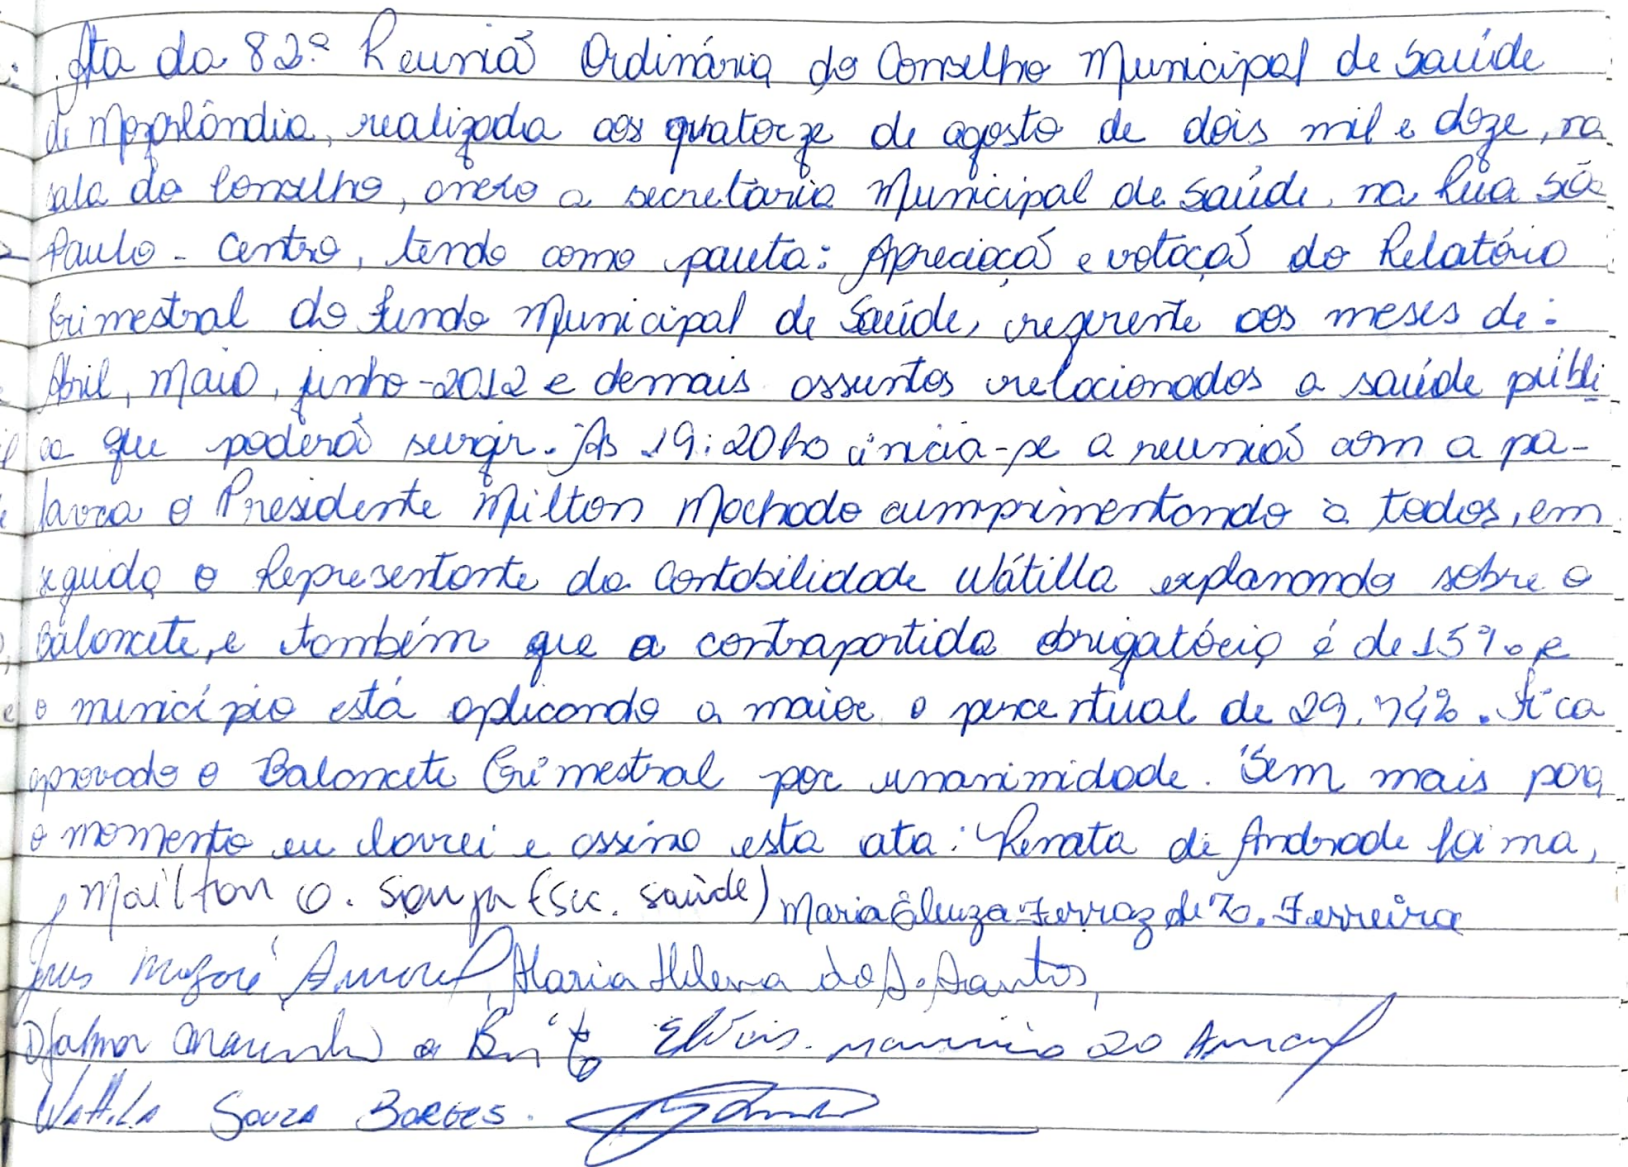 Ata da 82ª Reunião Ordinária do Conselho Municipal de Saúde
de Mozarlândia, realizada aos quatorze de agosto de dois mil e doze, na
sala do Conselho, anexo a secretaria Municipal de Saúde, na Rua São
Paulo - Centro, tendo como pauta: Apreciação e votação do Relatório
trimestral do fundo Municipal de Saúde, referente aos meses de:
Abril, Maio, junho-2012 e demais assuntos relacionados a saúde públi
ca que poderá surgir. Às 19:20hs inicia-se a reunião com a pa-
lavra o Presidente Milton Machado cumprimentando à todos, em
seguida o Representante da Contabilidade Wátilla explanando sobre o
Balancete, e também que a contrapartida obrigatória é de 15% e
o município está aplicando a maior o percentual de 29.74%. Fica
aprovado o Balancete Trimestral por unanimidade. Sem mais para
o momento eu lavrei e assino esta ata: Renata de Andrade Lima,
Mailton O. Souza (Sec. saúde) Maria Cleuza Ferraz de Ferreira
Amaral, Maria Helena do A. Santos,
Djalma Marinho Brito Elvis Amaral
Wattila Souza Borges.